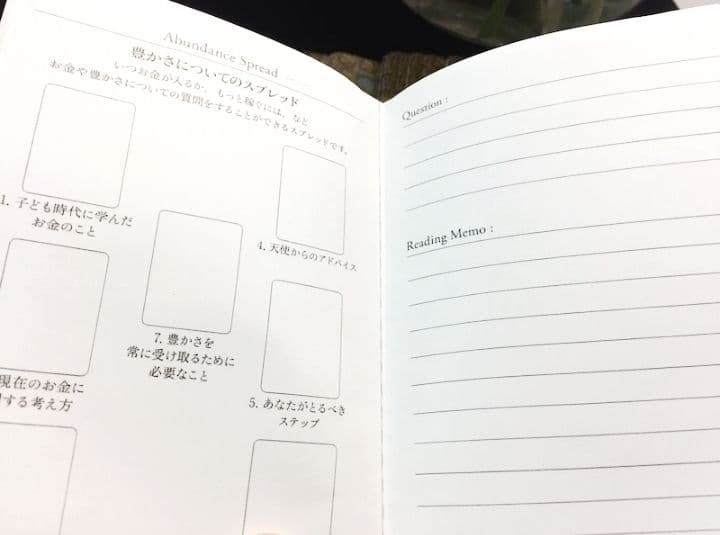 Abundance Spread
豊かさについてのスプレッド
いつお金が入るか、もっと稼ぐには、など
お金や豊かさについての質問をすることができるスプレッドです。
1. 子ども時代に学んだ
お金のこと
4. 天使からのアドバイス
7. 豊かさを
常に受け取るために
必要なこと
現在のお金に
する考え方
5. あなたがとるべき
ステップ
Question :
Reading Memo :